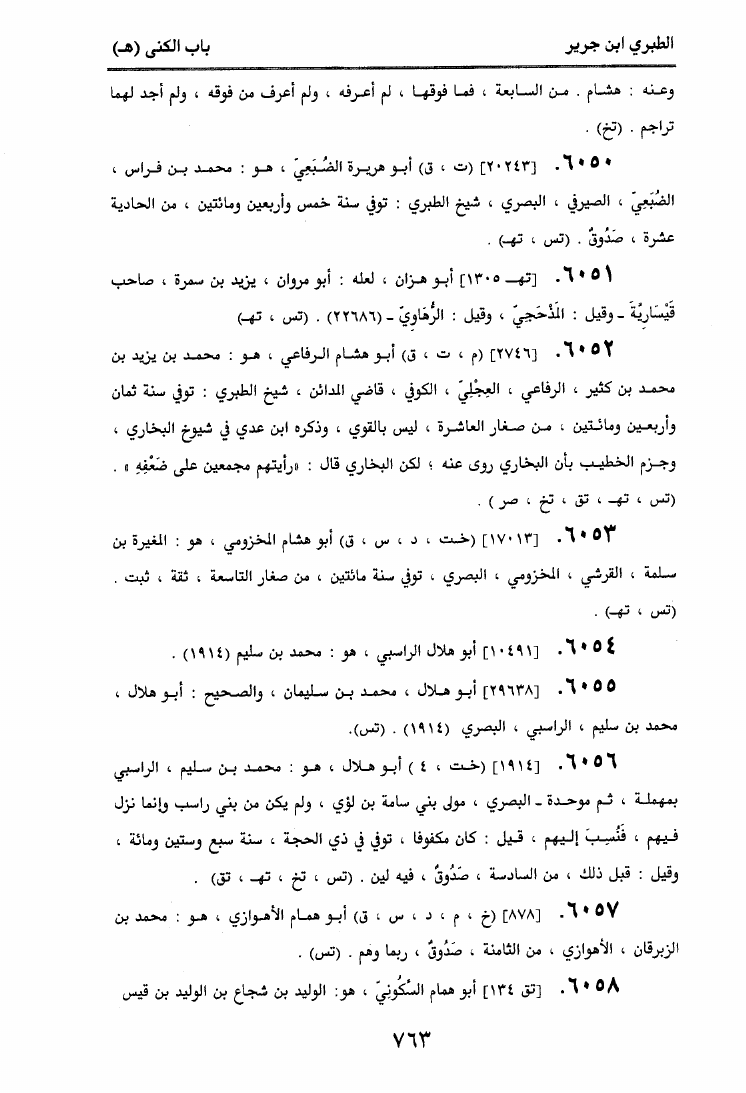 الطبري ابن جرير
باب الكنى (هـ)
وعنه : هشام . من السابعة ، فما فوقها ، لم أعرفه ، ولم أعرف من فوقه ، ولم أجد لهما
تراجم . (تخ) .
٦٠٥٠. [٢٠٢٤٣] (ت ، ق) أبو هريرة الضُبَعِيّ ، هو : محمد بن فراس ،
الضُبَعِيّ ، الصيرفي ، البصري ، شيخ الطبري : توفي سنة خمس وأربعين ومائتين ، من الحادية
عشرة ، صَدُوقٌ . (تس ، تهـ) .
٦٠٥١. [تهـ ١٣٠٥] أبو هزان ، لعله : أبو مروان ، يزيد بن سمرة ، صاحب
قَيْسَارِيَّةَ ـ وقيل : المَذْحَجِيّ ، وقيل : الرُّهَاوِيّ ـ (٢٢٦٨٦) . (تس ، تهـ)
٦٠٥٢. [٢٧٤٦] (م ، ت ، ق) أبو هشام الرفاعي ، هو : محمد بن يزيد بن
محمد بن كثير ، الرفاعي ، العِجْلِيّ ، الكوفي ، قاضي المدائن ، شيخ الطبري : توفي سنة ثمان
وأربعين ومائتين ، من صغار العاشرة ، ليس بالقوي ، وذكره ابن عدي في شيوخ البخاري ،
وجزم الخطيب بأن البخاري روى عنه ؛ لكن البخاري قال : «رأيتهم مجمعين على ضَعْفِهِ » .
(تس ، تهـ ، تق ، تخ ، صر ) .
٦٠٥٣. [١٧٠١٣] (خت ، د ، س ، ق) أبو هشام المخزومي ، هو : المغيرة بن
سلمة ، القرشي ، المخزومي ، البصري ، توفي سنة مائتين ، من صغار التاسعة ، ثقة ، ثبت .
(تس ، تهـ) .
٦٠٥٤. [١٠٤٩١] أبو هلال الراسبي ، هو : محمد بن سليم (١٩١٤) .
٦٠٥٥. [٢٩٦٣٨] أبو هلال ، محمد بن سليمان ، والصحيح : أبو هلال ،
محمد بن سليم ، الراسبي ، البصري (١٩١٤) . (تس).
٦٠٥٦. [١٩١٤] (خت ، ٤ ) أبو هلال ، هو : محمد بن سليم ، الراسبي
بمهملة ، ثم موحدة ـ البصري ، مولى بني سامة بن لؤي ، ولم يكن من بني راسب وإنما نزل
فيهم ، فَنُسِبَ إليهم ، قيل : كان مكفوفا ، توفي في ذي الحجة ، سنة سبع وستين ومائة ،
وقيل : قبل ذلك ، من السادسة ، صَدُوقٌ ، فيه لين . (تس ، تخ ، تهـ ، تق) .
٦٠٥٧. [٨٧٨] (خ ، م ، د ، س ، ق) أبو همام الأهوازي ، هو : محمد بن
الزبرقان ، الأهوازي ، من الثامنة ، صَدُوقٌ ، ربما وهم . (تس) .
٦٠٥٨. [تق ١٣٤] أبو همام السَّكُونِيّ ، هو: الوليد بن شجاع بن الوليد بن قيس
٧٦٣